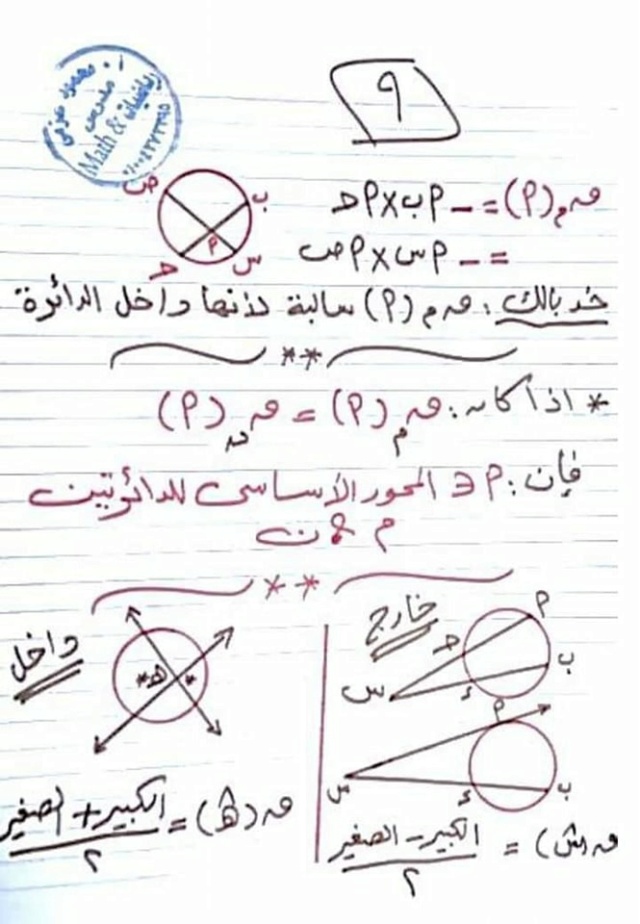 أ. محمود عزمي
مدرس
رياضيات & Math
٩
ص
ب
م
س
ح
ق م (م) = − م ب × م ح
= − م س × م ص
خد بالك : ق م (م) سالبة لأنها داخل الدائرة
**
* اذا كان : ق م (م) = ق ن (م)
فإن : م ∈ المحور الأساسى للدائرتين
م & ن
**
خارج
م
ح
ب
س
ء
م
س
ء
ب
ق (س) = الكبير − الصغير
٢
داخل
* ه *
ق (ه) = الكبير + الصغير
٢